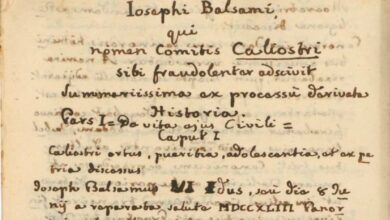 Iosephi Balsami,
qui
nomen Comitis Callostri
sibi fraudolenter adscivit
summariissima ex processu derivata
Historia.
Pars I = De vita ejus Civili =
Caput I
Caliostri ortus, pueritia, adolescentia, et ex pa
tria discessus
Josephus Balsamus VI Idus, seu dia 8 Ju
nij a reparata salute MDCCXLIII Panor